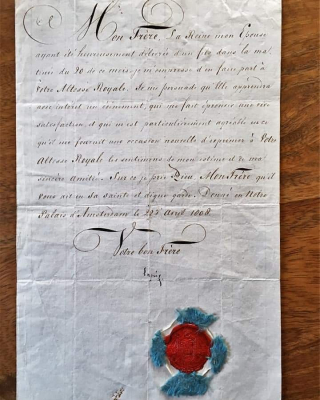 Mon Frère, la Reine mon Epouse
ayant été heureusement délivrée d'un fils dans la ma-
tinée du 20 de ce mois, je m'empresse d'en faire part à
Votre Altesse Royale. Je me persuade qu'Elle apprendra
avec intérêt un évènement, qui me fait éprouver une vive
satisfaction, et qui m'est particulièrement agréable en ce
qu'il me fournit une occasion nouvelle d'exprimer à Votre
Altesse Royale les sentimens de mon estime et de ma
sincère amitié. Sur ce je prie Dieu, Mon Frère qu'il
vous ait en sa sainte et digne garde. Donné en Notre
Palais d'Amsterdam le avril 1808.
Votre bon Frère